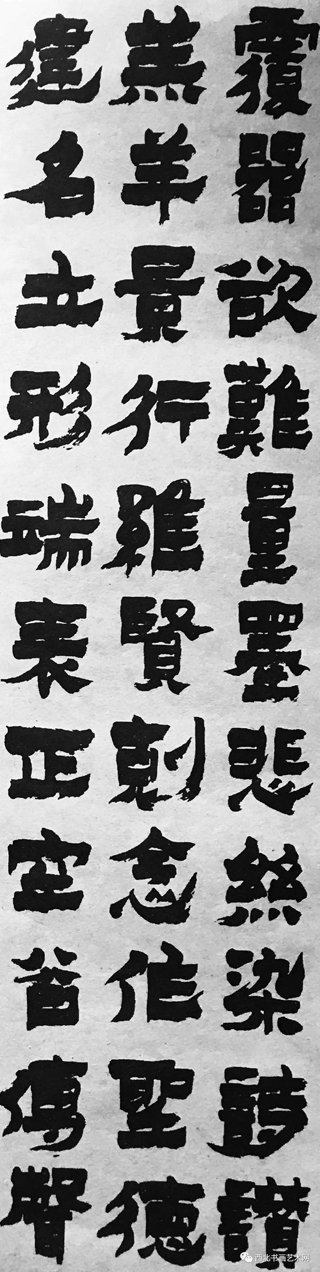 覆器欲難量墨悲絲染詩讚
羔羊景行維賢剋念作聖德
建名立形端表正空谷傳聲
西北书画艺术网